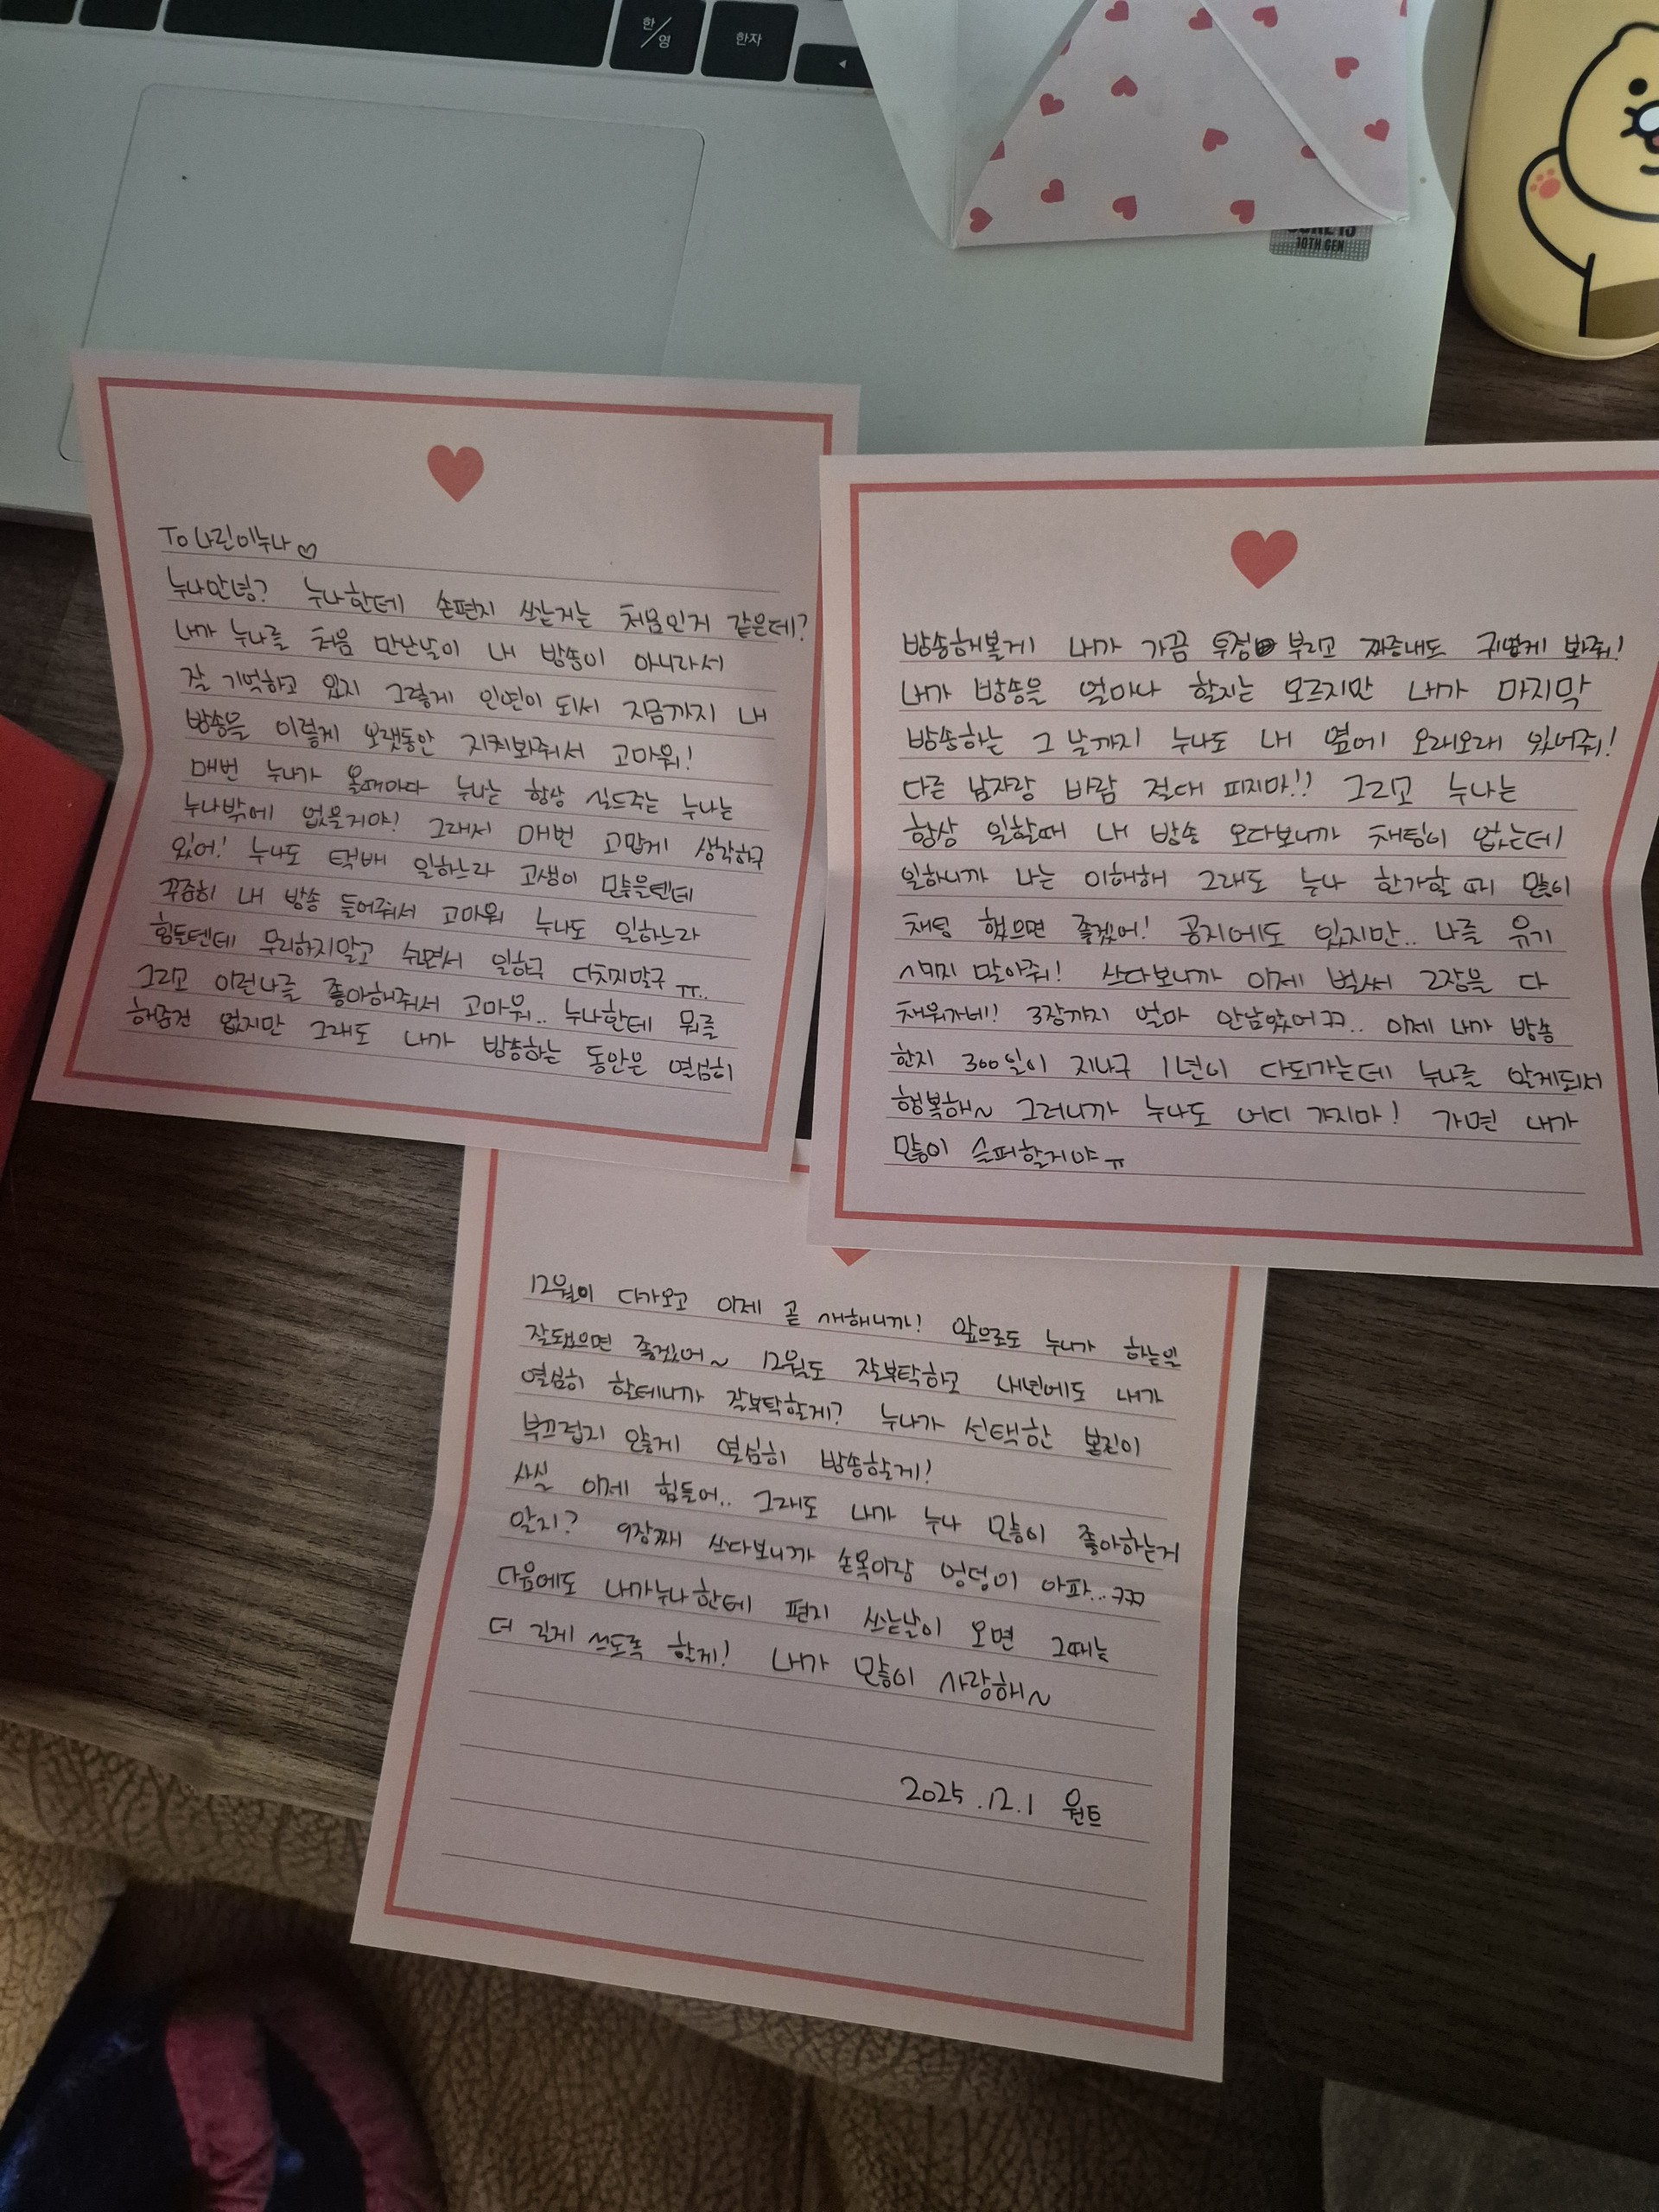 한/영
한자
◀
10TH GEN
To 나린이누나♡
누나안녕? 누나한테 손편지 쓰는거는 처음인거 같은데?
내가 누나를 처음 만난날이 내 방송이 아니라서
잘 기억하고 있지 그렇게 인연이 되서 지금까지 내
방송을 이렇게 오랫동안 지켜봐줘서 고마워!
매번 누나가 올때마다 누나는 항상 실드주는 누나는
누나밖에 없을거야! 그래서 매번 고맙게 생각하구
있어! 누나도 택배 일하느라 고생이 많을텐데
꾸준히 내 방송 들어줘서 고마워 누나도 일하느라
힘들텐데 무리하지말고 쉬면서 일하구 다치지말구 ㅠ..
그리고 이런나를 좋아해줘서 고마워.. 누나한테 뭐를
해준건 없지만 그래도 내가 방송하는 동안은 열심히
방송해볼게 내가 가끔 투정 부리고 짜증내도 귀엽게 봐줘!
내가 방송을 얼마나 할지는 모르지만 내가 마지막
방송하는 그 날까지 누나도 내 옆에 오래오래 있어줘!
다른 남자랑 바람 절대 피지마!! 그리고 누나는
항상 일할때 내 방송 오다보니까 채팅이 없는데
일하니까 나는 이해해 그래도 누나 한가할 때 많이
채팅 했으면 좋겠어! 공지에도 있지만.. 나를 유기
시키지 말아줘! 쓰다보니까 이제 벌써 2장을 다
채워가네! 3장까지 얼마 안남았어ㅋㅋ.. 이제 내가 방송
한지 300일이 지나구 1년이 다되가는데 누나를 알게되서
행복해~ 그러니까 누나도 어디 가지마! 가면 내가
많이 슬퍼할거야 ㅠ
12월이 다가오고 이제 곧 새해니까! 앞으로도 누나가 하는일
잘됐으면 좋겠어~ 12월도 잘부탁하고 내년에도 내가
열심히 할테니까 잘부탁할게? 누나가 선택한 본진이
부끄럽지 않게 열심히 방송할게!
사실 이제 힘들어.. 그래도 내가 누나 많이 좋아하는거
알지? 9장째 쓰다보니까 손목이랑 엉덩이 아파...ㅋㅋㅋ
다음에도 내가누나한테 편지 쓰는날이 오면 그때는
더 길게 쓰도록 할게! 내가 많이 사랑해~
2025.12.1 원트